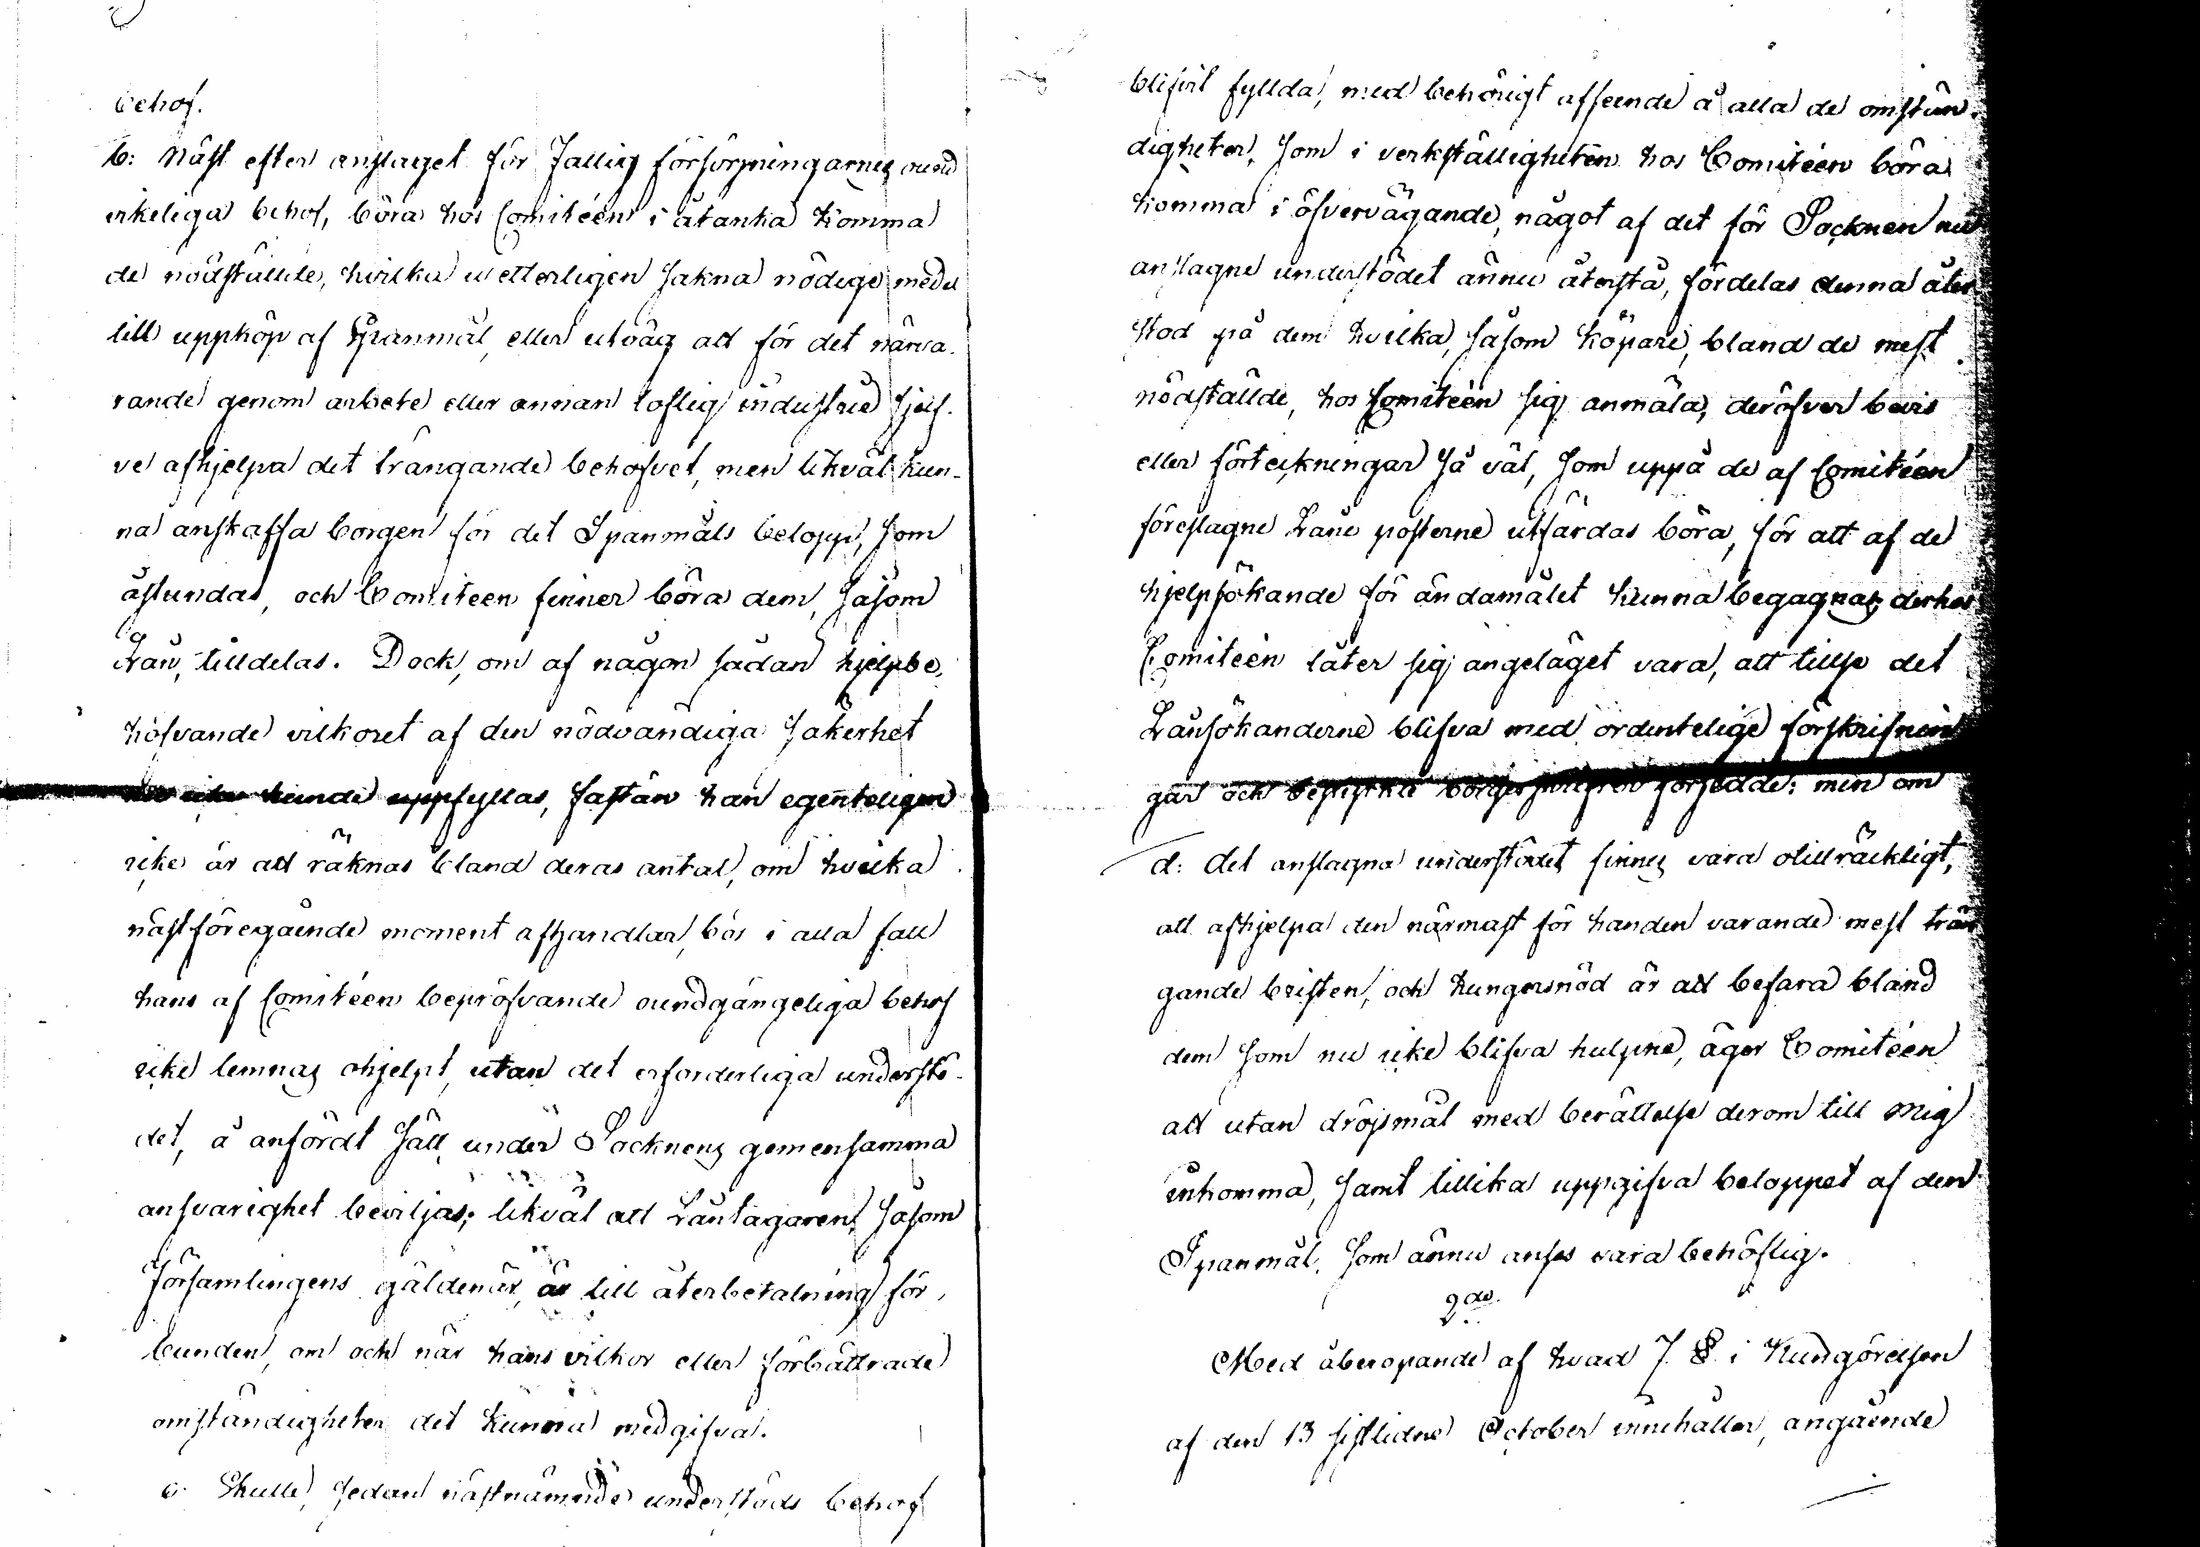 behof.
b: Näst efter anslaget för Fattig försörjningarnes ound
vikeliga behof, böra hos Comitéen i åtanka komma
de nödställde, hvilka vetterligen sakna nödige medel
till uppköp af Spanmål, eller utväg att för det närva-
rande genom arbete eller annan loflig industrie sjelf-
ve afhjelpa det trängande behofvet, men likväl kun-
na anskaffa borgen för det Spanmåls belopp, som
åstundas, och Comiteen finner böra dem, såsom
Lån, tilldelas. Dock, om af någon sådan hjelpbe-
höfvande vilkoret af den nödvändiga säkerhet
kunde uppfyllas, fastän han egenteligen
icke är att räknas bland deras antal, om hvilka
nästföregående moment afhandlar, bör i alla fall
hans af Comitéen bepröfvande oundgängeliga behof
icke lemnas ohjelpt, utan det erforderliga understö-
det, å anfördt sätt, under Socknens gemensamma
ansvarighet beviljas; likväl att Låntagaren, såsom
Församlingens gäldenär, är till återbetalning för-
bunden, om och när hans vilkor eller förbättrade
omständigheter det kunna medgifva.
c. Skulle, sedan nästnämnde understöds behof
blifvit fyllda, med behörigt afseende å alla de omstän-
digheter, som i verkställigheten hos Comitéen böra
komma i öfvervägande, något af det för Socknen nu
anslagne understödet ännu återstå, fördelas denna åter
stod på dem hvilka, såsom köpare, bland de mest
nödställde, hos Comitéen sig anmäla, deröfver bevis
eller förteckningar så väl, som uppå de af Comitéen
föreslagne Låne posterne utfärdas böra, för att af de
hjelpsökande för ändamålet kunna begagnas, derhos
Comitéen låter sig angeläget vara, att tillse det
Lånsökanderne blifva med ordentelige förskrifnin
gar och försedde: men om
d: det anslagna understödet finnes vara otillräckligt,
att afhjelpa den närmast för handen varande mest trän
gande bristen, och hungersnöd är att befara bland
dem som nu icke blifva hulpne, äger Comitéen
att utan dröjsmål med berättelse derom till mig
inkomma, samt tillika uppgifva beloppet af den
Spanmål, som ännu anses vara behöflig.
2do.
Med åberopande af hvad 7. § i Kungörelsen
af den 13 sistlidne October innehåller, angående